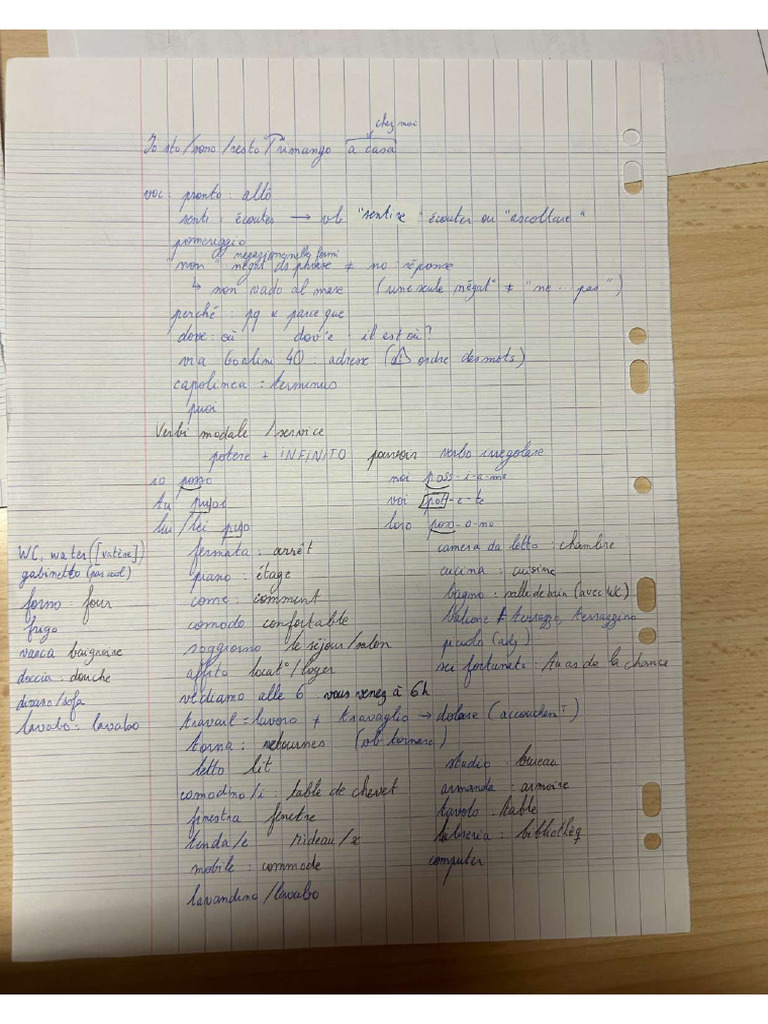 chez moi
Io sto/sono/resto/rimango a casa
voc: pronto: allô
senti: écoutes → vb "sentire" écouter ou "ascoltare"
pomeriggio
negazione nella
"non" négat° de phrase ≠ no réponse
↳ non vado al mare (une seule négat° ≠ "ne ... pas")
perché: pq & parce que
dove: où dov'e il est où?
via Goalini 40: adresse (⚠ ordre des mots)
capolinea: terminus
puoi
Verbi modale /service
potere + INFINITO pouvoir verbo irregolare
io posso noi poss-i-a-mo
tu puos voi pot-e-te
lui/lei puo loro poss-o-no
WC, water ([vatère])
gabinetto (pas cool)
forno: four
frigo
vasca baignoire
doccia: douche
divano/sofa
lavabo: lavabo
fermata: arrêt
piano: étage
come: comment
comodo confortable
soggiorno le séjour/salon
affito locat°/loyer
vediamo alle 6 vous venez à 6h
travail = lavoro ≠ travaglio → dolore (accouchemt)
torna: retournes (vb tornare)
letto lit
comodino/i: table de chevet
finestra fenêtre
tinda/e rideau/x
mobile: commode
lavandino/lavabo
camera da letto: chambre
cucina: cuisine
bagno: salle de bain (avec WC)
balcone ≠ terrazzo, terrazzino
piccolo (adj)
sei fortunato: tu as de la chance
studio: bureau
armanda: armoire
tavolo: table
libreria: bibliothèq
computer